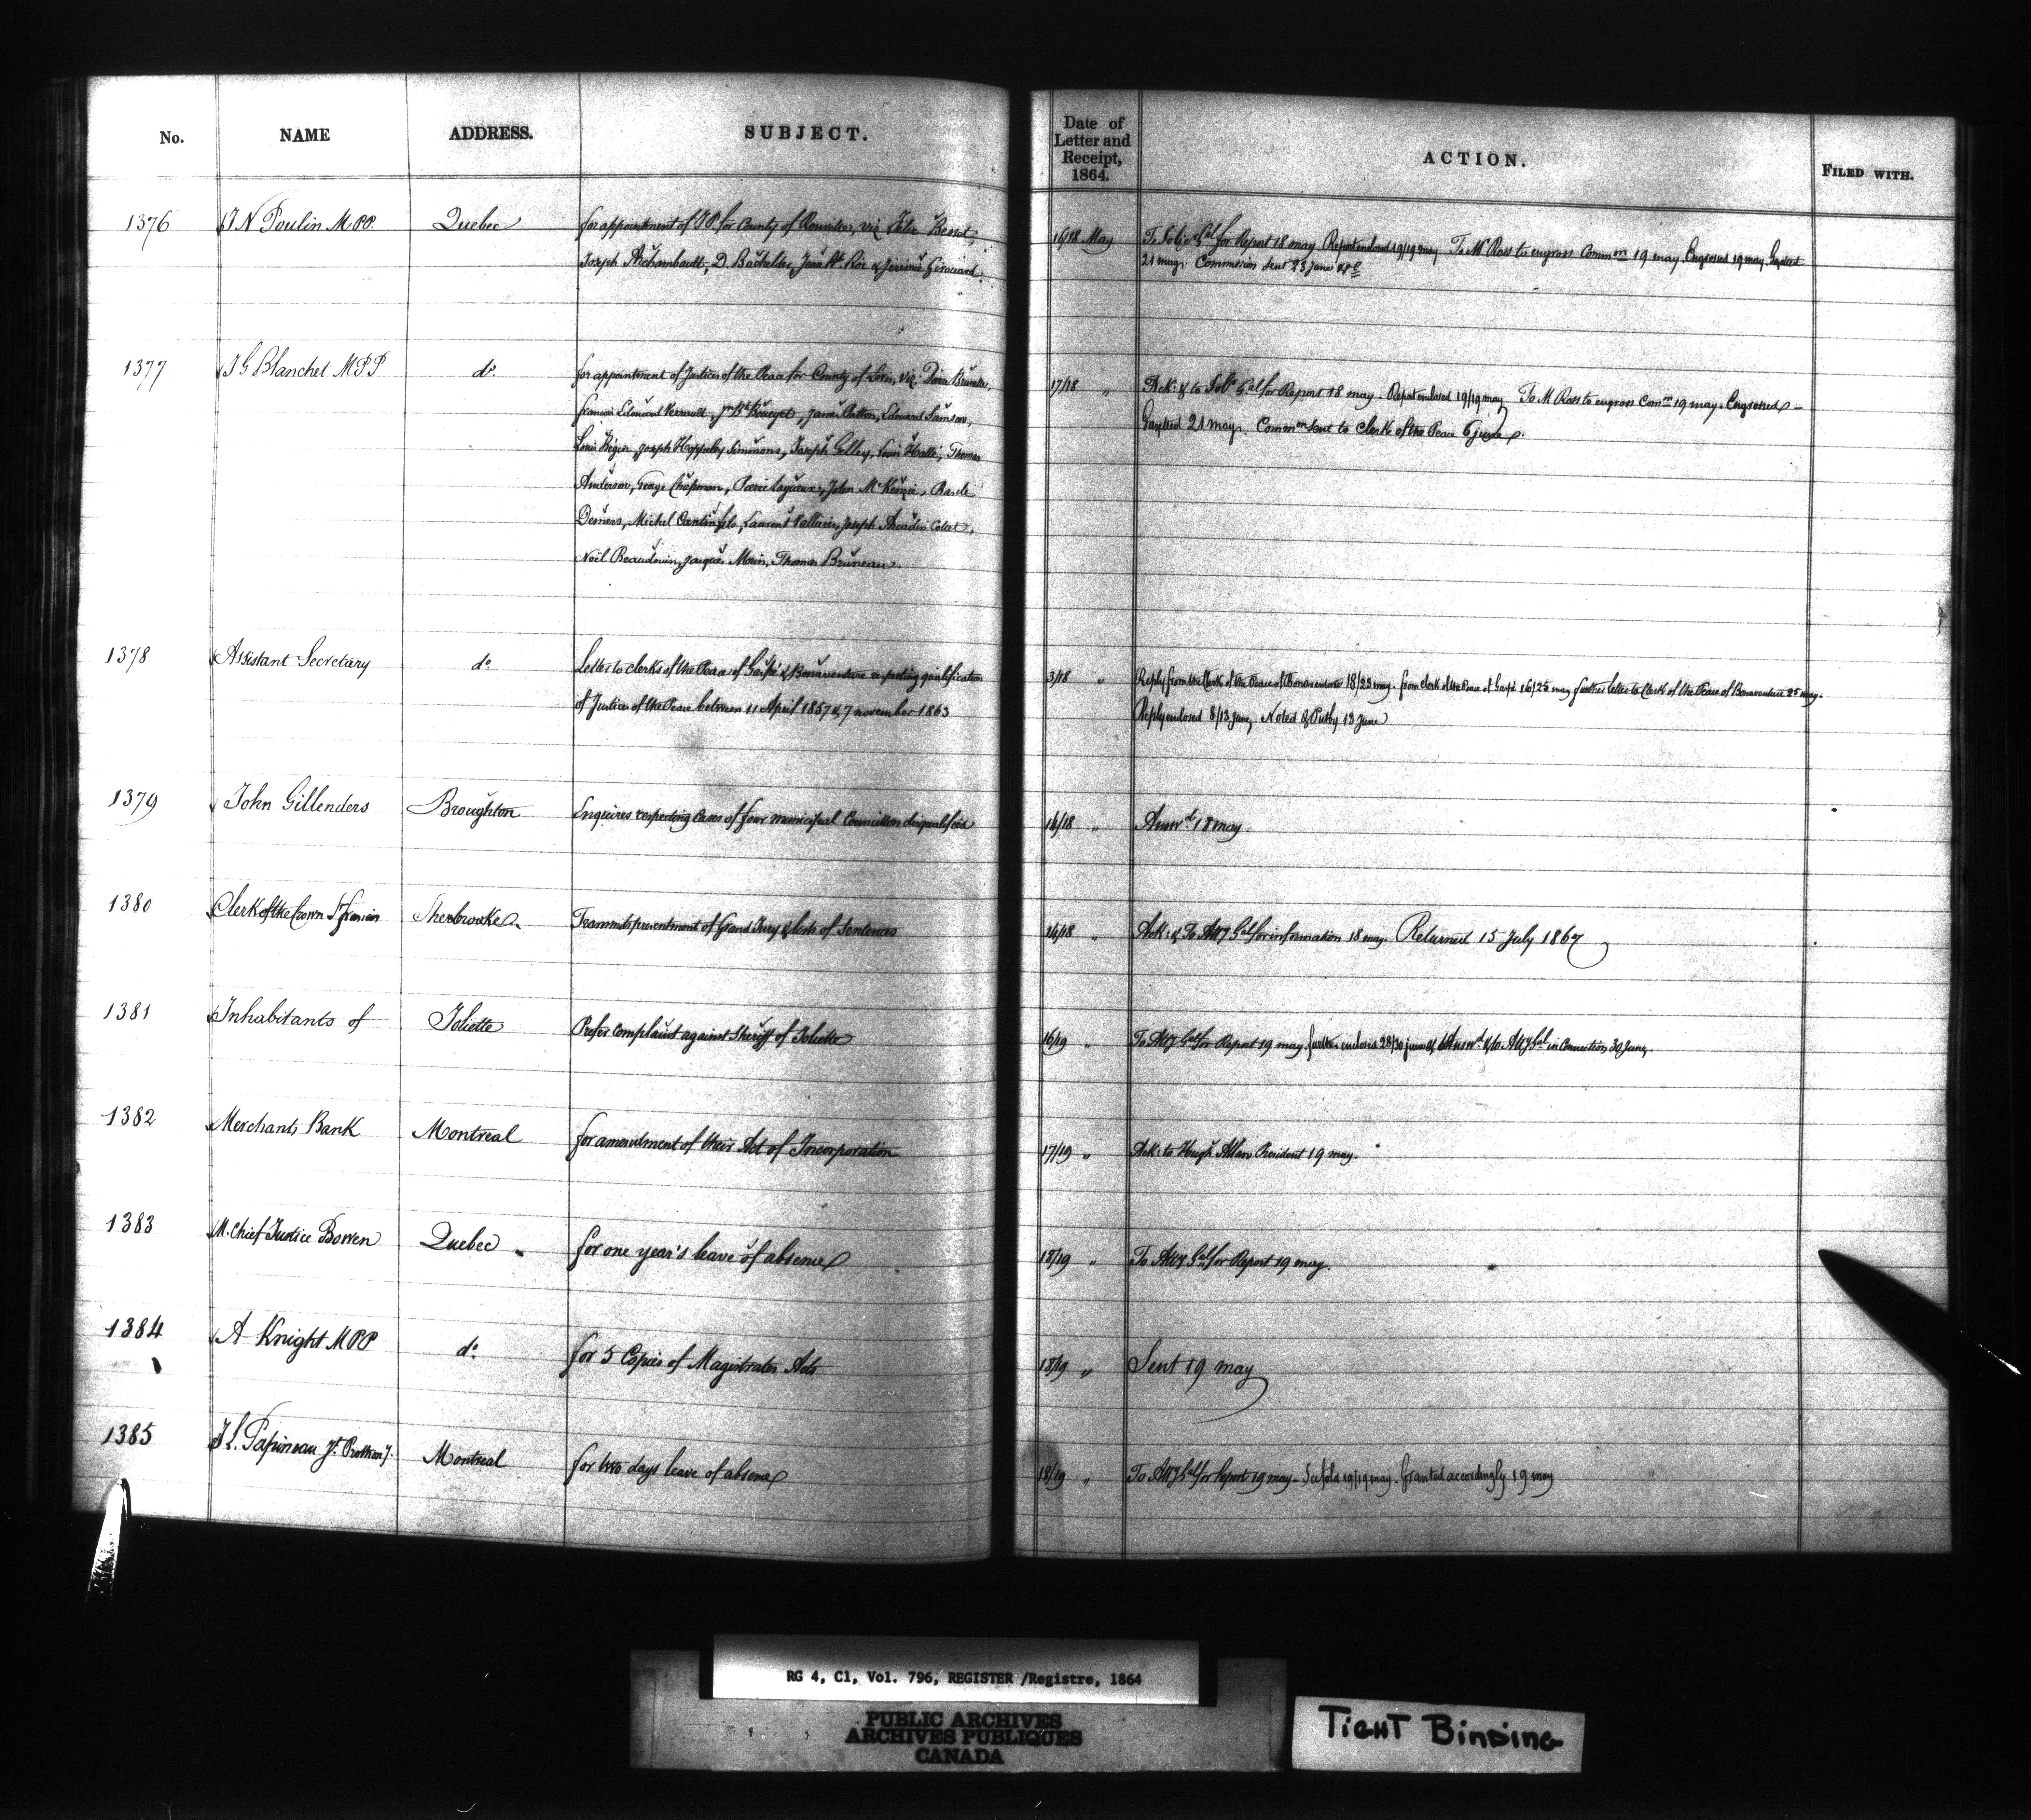 No. NAME ADDRESS. SUBJECT. Date of Letter and Receipt, 1864. ACTION. FILED WITH.
1376 J N Poulin M.P.P. Quebec for appointment of J.P. for County of Rouville, viz Félix Bessot, 16/18 May To Solicr Gal for Report 18 may. Report enclosed 19/19 may To Mr Ross to engross Common 19 may. Engrossed 19 may. Gazetted
Joseph Archambault, D. Bachelder, Jean Bt. Roi & Jérémie Girouard. 21 may. Commission sent 23 june
1377 J G Blanchet M P P do. for appointment of Justices of the Peace for County of Levis, viz: 17/18 " Ack: & to Solr Gal for Report 18 may. Report enclosed 19/19 may To M Ross to engross Comm 19 may. Engrossed
francois Edouard Perrault, James Patton, Edouard Samson, Gazetted 21 may. Common sent to Clerk of the Peace 6 june.
Louis Bégin, Joseph Simmons, Joseph Gelley, Louis Hallé, Thomas
Anderson, George Chapman, Pierre Lagueux, John McKenzie, Basile
Demers, Michel Laurent Joseph Arcadius Collet,
Noël Beaudouin, Jacques Morin, Thomas Bruneau.
1378 Assistant Secretary do Letter to clerks of the Peace of Gaspé & Bonaventure respecting qualification 3/18 " Reply from the Clerk of the Peace of Bonaventure 18/23 may. from Clerk of the Peace of Gaspé 16/25 may further letter to Clerk of the Peace of Bonaventure 25 may.
of Justices of the Peace between 11 April 1857 & 7 november 1863 Reply enclosed 8/13 June, Noted & Putby 13 June
1379 John Gillenders Broughton Enquires respecting cases of four municipal Councillors disqualified 16/18 " Answd 18 may.
1380 Clerk of the Crown St francis Sherbrooke. Transmits presentment of Grand Jury & lists of Sentences /18 " Ack: & To Atty Gal for information 18 may. Returned 15 July 1867
1381 Inhabitants of Joliette Prefer complaint against Sheriff of Joliette 16/19 " To Atty Gal for Report 19 may. further enclosed 28/30 june Answd & to Atty Gal in Connection 30 June.
1382 Merchants Bank Montreal for amendment of their Act of Incorporation 17/19 " Ack: to Hugh Allan President 19 may.
1383 M. Chief Justice Bowen Quebec for one year's leave of absence 18/19 " To Atty Gal for Report 19 may.
1384 A Knight M P P do. for 5 Copies of Magistrates Acts 18/19 " Sent 19 may
1385 J L. Papineau Jt. Prothony. Montreal for two days leave of absence 18/19 " To Atty Gal for Report 19 may - 19/19 may. Granted accordingly 19 may
RG 4, C1, Vol. 796, REGISTER /Registre, 1864
PUBLIC ARCHIVES
ARCHIVES PUBLIQUES
CANADA
TIGHT BINDING